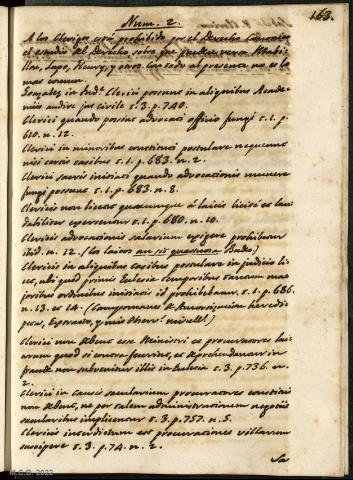 163.
Num. 2.
A los Clerigos está prohibido por el Derecho Canonico
el estudio del Derecho, sobre que pueden verse Mabi-
llon, Lupo, Fleury, y otros. Con todo al presente no es lo
mas comun.
Gonzalez in Ind. Clerici possunt in aliquibus Acade-
miis audire jus civile t. 3. p. 740.
Clerici quando possint advocati officio fungi t. 1. p.
610. n. 12.
Clerici in minoribus constituti postulare nequeunt
nisi certis casibus t. 1. p. 683. n. 2.
Clerici sacris iniciati quando advocationis munere
fungi possunt t. 1. p. 683. n. 8.
Clericis non licet quaecumque à laicis licitè et lau-
dabiliter exercentur t. 1. p. 680. n. 10.
Clericis advocationis salarium exigere prohibetur
ibid. n. 12. (los laicos an sit quaestiosa Dudo.)
Clericis in aliquibus casibus postulare in judicio li-
cet, abs quod primis Eclesiae temporibus tantum ma-
joribus ordinibus iniciatis id prohibebatur t. 1. p. 686.
n. 13. et 14. (Campomanes de Amortizacion
, y mis Observ. miscell.)
Clerici non debent esse Ministri et procuratores lai-
corum quod si contra fecerint, et deprehendantur in
fraude non subvenitur illis in Eclesia t. 3. p. 736. n.
2.
Clerici in causis saecularium procuratores constitui
non debent, ne por talem administrationem negotiis
saecularibus implicentur t. 3. p. 757. n. 5.
Clericis interdictum est procurationes villarum
suscipere t. 3. p. 74. n. 2.
Sa
M.C.D. 2022